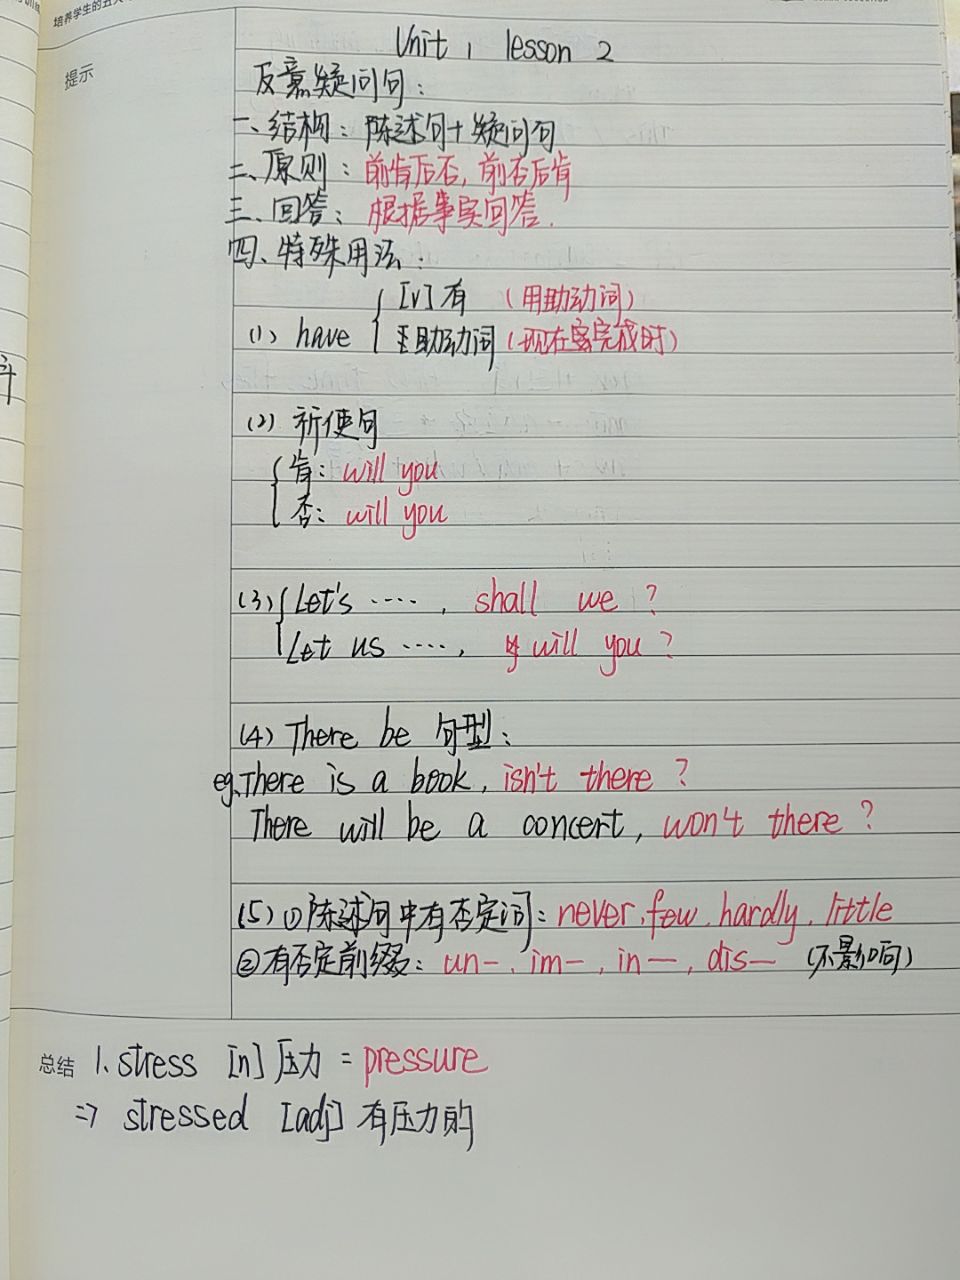 培养学生的五大
提示
Unit 1 lesson 2
反意疑问句：
一、结构：陈述句+疑问句
二、原则：前肯后否，前否后肯
三、回答：根据事实回答.
四、特殊用法：
(1) have { [v]有 (用助动词)
助动词 (现在完成时)
(2) 祈使句
肯：will you
否：will you
(3) { Let's ····, shall we ?
Let us ····, will you ?
(4) There be 句型：
eg. There is a book, isn't there ?
There will be a concert, won't there ?
(5) ①陈述句中有否定词：never, few, hardly, little
②有否定前缀：un-, im-, in-, dis- (不影响)
总结 1. stress [n] 压力 = pressure
=> stressed [adj] 有压力的